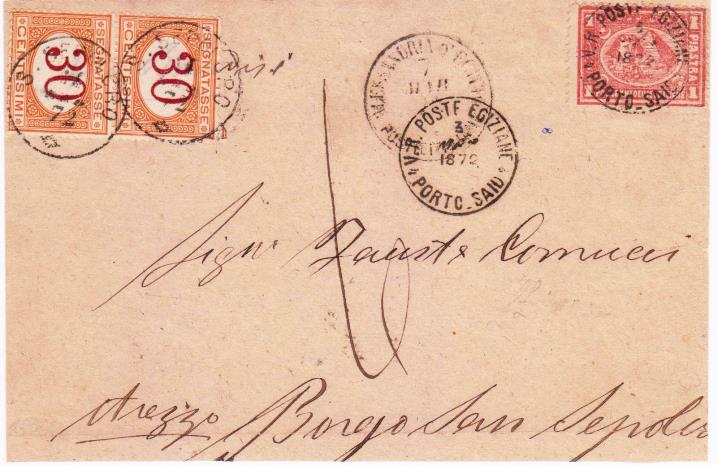 SEGNATASSE
30
CENTESIMI
SEGNATASSE
30
CENTESIMI
1 PIASTRA 1
V.R. POSTE EGIZIANE
1872
PORTO_SAID
ALESSANDRIA D'EGITTO
7
V.R. POSTE EGIZIANE
3
1872
PORTO_SAID
Sigr Fausto Comucci
Arezzo Borgo San Sepolcr